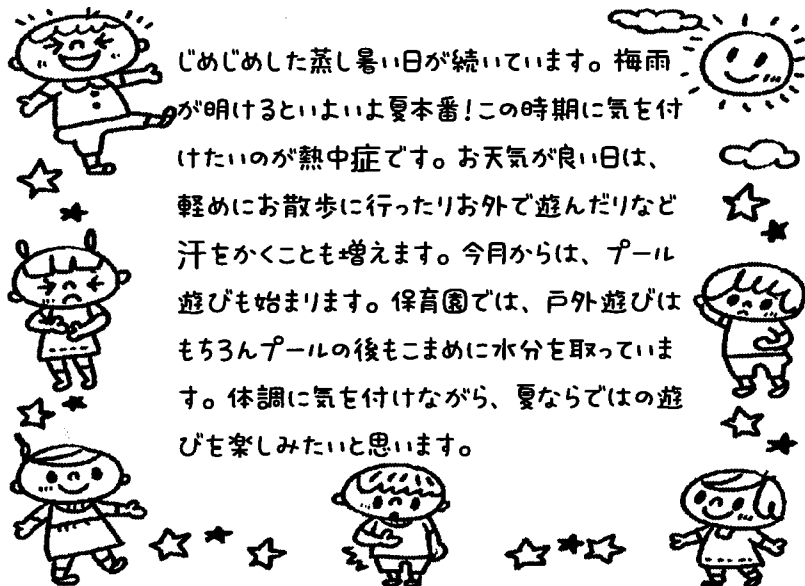 じめじめした蒸し暑い日が続いています。梅雨
が明けるといよいよ夏本番！この時期に気を付
けたいのが熱中症です。お天気が良い日は、
軽めにお散歩に行ったりお外で遊んだりなど
汗をかくことも増えます。今月からは、プール
遊びも始まります。保育園では、戸外遊びは
もちろんプールの後もこまめに水分を取っていま
す。体調に気を付けながら、夏ならではの遊
びを楽しみたいと思います。